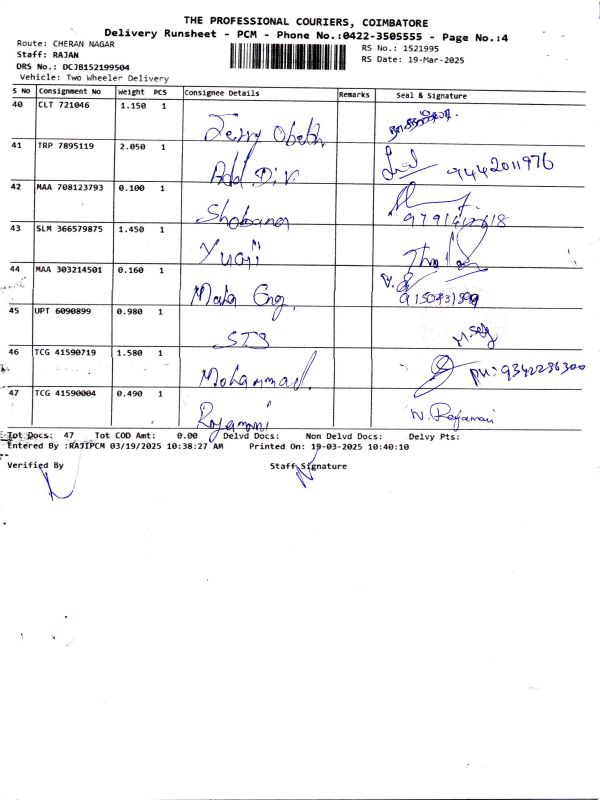 THE PROFESSIONAL COURIERS, COIMBATORE
Delivery Runsheet - PCM - Phone No.:0422-3505555 - Page No.:4
Route: CHERAN NAGAR
Staff: RAJAN
DRS No.: DCJB152199504
Vehicle: Two Wheeler Delivery
RS No.: 1521995
RS Date: 19-Mar-2025
S No Consignment No Weight PCS Consignee Details Remarks Seal & Signature
40 CLT 721046 1.150 1 Jerry
41 TRP 7895119 2.050 1 Add Div. 9442011976
42 MAA 708123793 0.100 1 Shobana
43 SLM 366579875 1.450 1 Yuaji
44 MAA 303214501 0.160 1 Eng.
45 UPT 6090899 0.980 1 STS
46 TCG 41590719 1.580 1 Mohammad. PH: 9342286300
47 TCG 41590004 0.490 1 Rajamani N. Rajamani
Tot Docs: 47 Tot COD Amt: 0.00 Delvd Docs: Non Delvd Docs: Delvy Pts:
Entered By :RAJIPCM 03/19/2025 10:38:27 AM Printed On: 19-03-2025 10:40:10
Verified By Staff Signature